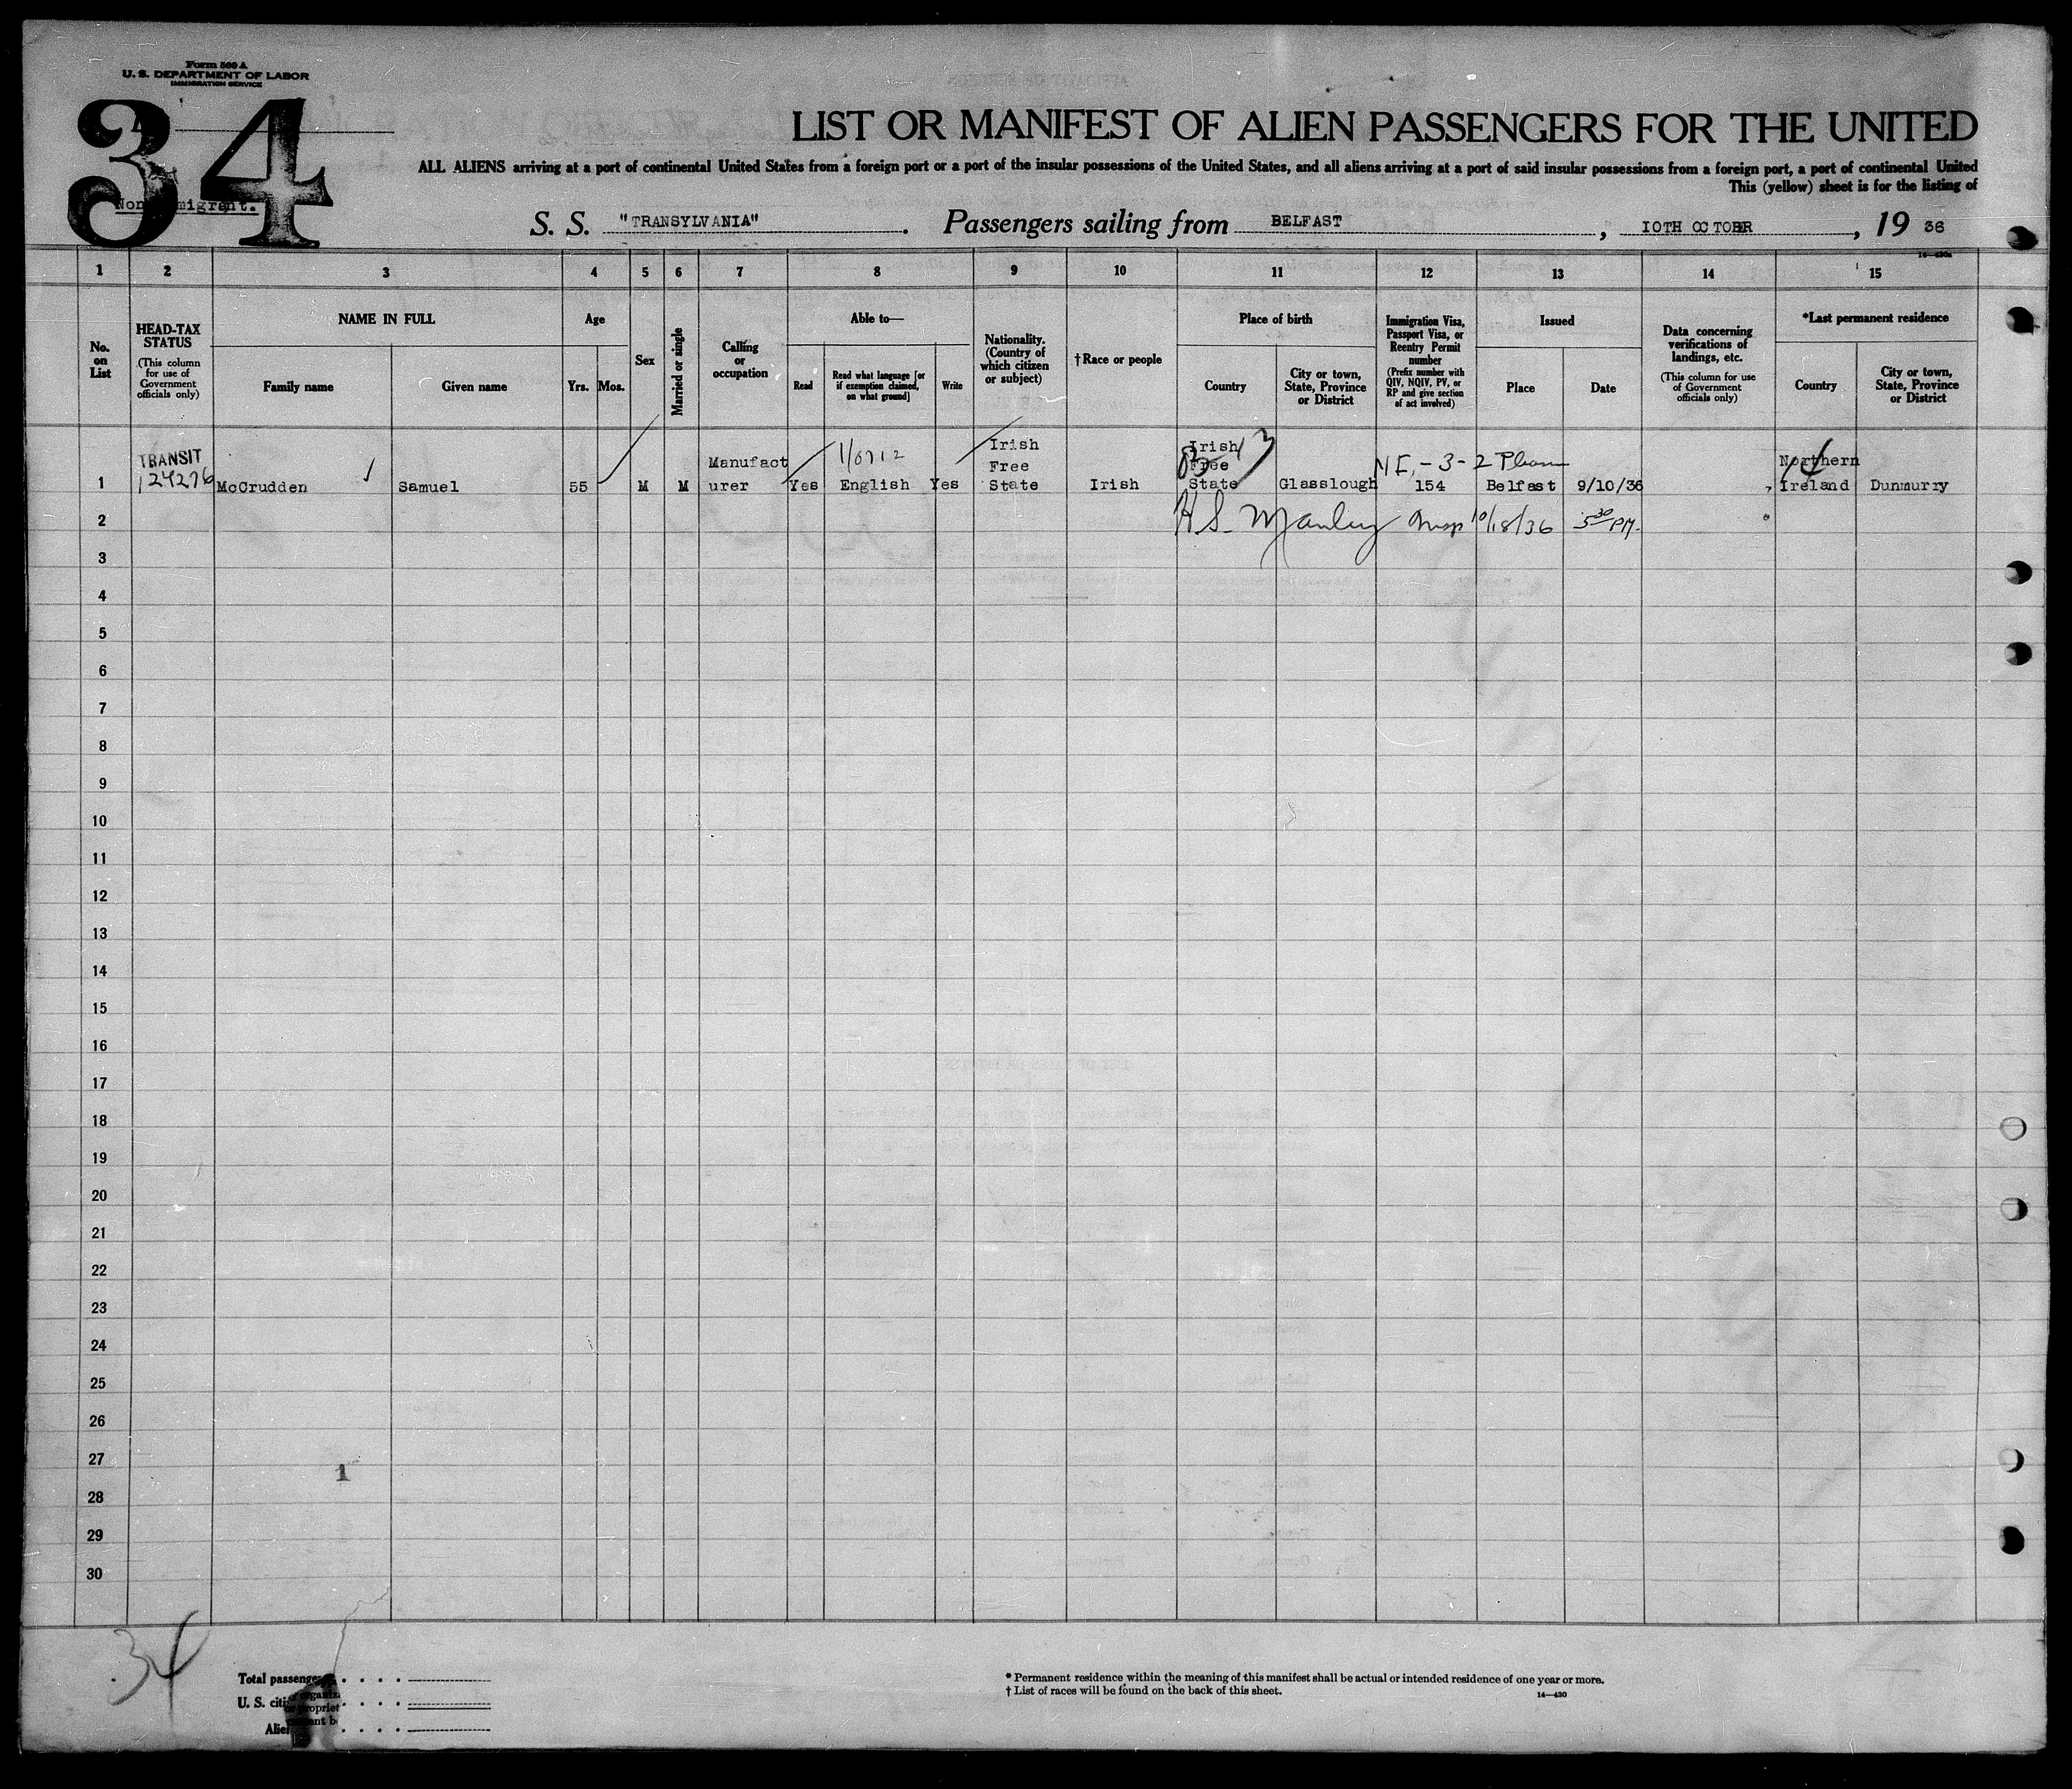 Form 560 A
U. S. DEPARTMENT OF LABOR
IMMIGRATION SERVICE
34
LIST OR MANIFEST OF ALIEN PASSENGERS FOR THE UNITED
ALL ALIENS arriving at a port of continental United States from a foreign port or a port of the insular possessions of the United States, and all aliens arriving at a port of said insular possessions from a foreign port, a port of continental United
This (yellow) sheet is for the listing of
S. S. "TRANSYLVANIA". Passengers sailing from BELFAST, 10TH OCTOBER, 19 36
1 2 3 4 5 6 7 8 9 10 11 12 13 14 15
No. on List
HEAD-TAX STATUS
(This column for use of Government officials only)
NAME IN FULL
Family name
Given name
Age
Yrs. Mos.
Sex
Married or single
Calling or occupation
Able to—
Read
Read what language [or if exemption claimed, on what ground]
Write
Nationality. (Country of which citizen or subject)
†Race or people
Place of birth
Country
City or town, State, Province or District
Immigration Visa, Passport Visa, or Reentry Permit number
(Prefix number with QIV, NQIV, PV, or RP and give section of act involved)
Issued
Place
Date
Data concerning verifications of landings, etc.
(This column for use of Government officials only)
*Last permanent residence
Country
City or town, State, Province or District
TRANSIT
Irish Irish
Manufact Free Free NE,-3-2 Northern
1 McCrudden Samuel 55 M M urer Yes English Yes State Irish State Glasslough 154 Belfast 9/10/36 Ireland Dunmurry
2 H.S. Manley Insp 10/18/36 5 30 PM.
3
4
5
6
7
8
9
10
11
12
13
14
15
16
17
18
19
20
21
22
23
24
25
26
27
1
28
29
30
34
Total passengers
U. S. citi
Alien
* Permanent residence within the meaning of this manifest shall be actual or intended residence of one year or more.
† List of races will be found on the back of this sheet.
14—430